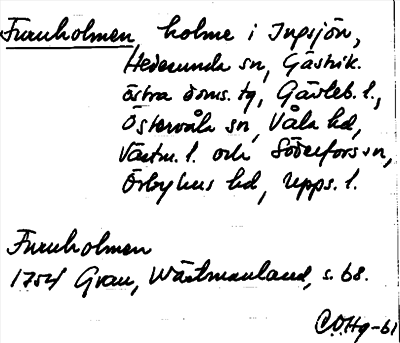 Furuholmen, holme i Ingsjön,
Hedesunda sn, Gästrik.
östra doms. tg, Gävleb. l.,
Östervåla sn, Våla hd,
Västm. l. och Söderfors sn,
Örbyhus hd, Upps. l.
Furuholmen
1754 Grau, Wästmanland, s. 68.
C.O.Hg-61